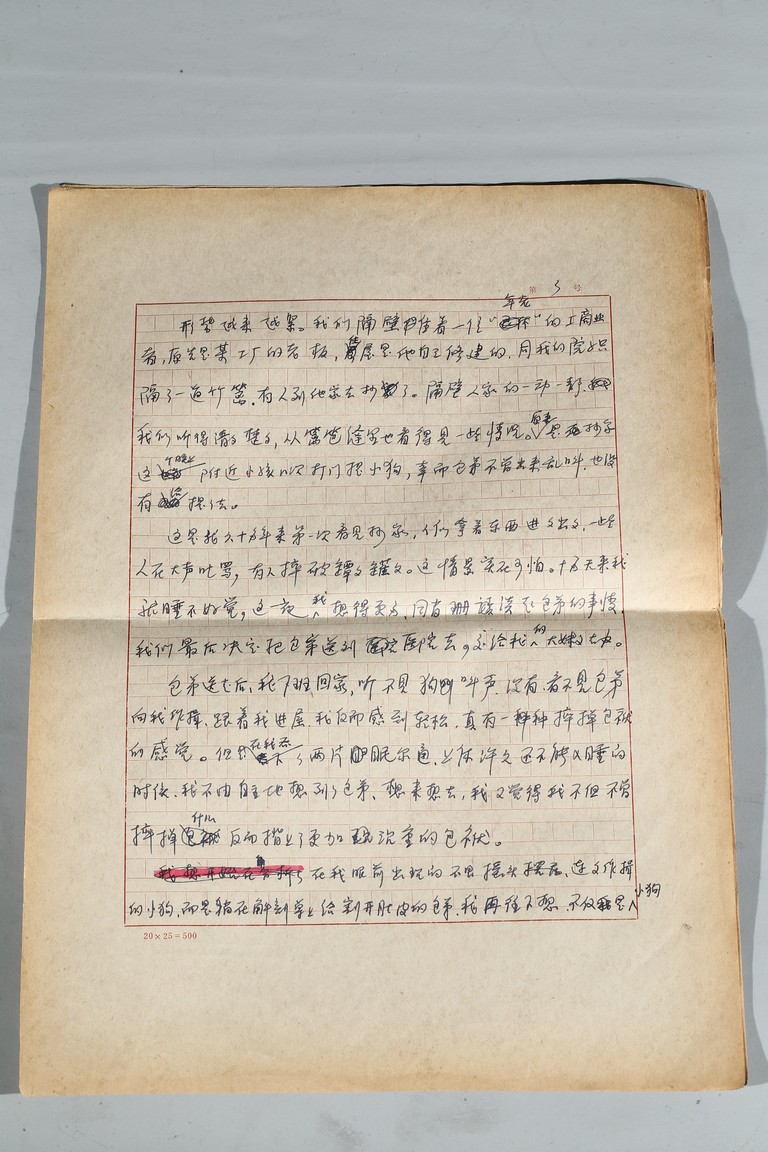 第 5 号
形势越来越紧。我们隔壁住着一位“年老”的工商业
者,原先是某工厂的老板,住屋是他自己修建的,同我的院子只
隔了一道竹篱。有人到他家去抄家了。隔壁人家的一动一静,
我们听得清清楚楚,从篱笆缝里也看得见一些情况。
这个晚上附近小孩几次打门捉小狗,幸而包弟不曾出来乱叫,也没
有给捉去。
这是我六十多年来第一次看见抄家,人们拿着东西进进出出,一些
人在大声叱骂,有人摔破罎罎罐罐。这情景实在可怕。十多天来我
就睡不好觉,这一夜我想得更多,同萧珊谈起包弟的事情,
我们最后决定把包弟送到医院去,交给我的大妹去办。
包弟送走后,我下班回家,听不见狗叫声,没有看不见包弟
向我作揖、跟着我进屋,我反而感到轻松,真有一种摔掉包袱
的感觉。但是在我吞了两片眠尔通、上床许久还不能入睡的
时候,我不由自主地想到了包弟,想来想去,我又觉得我不但不曾
摔掉什么,反而揹上了更加沉重的包袱。
在我眼前出现的不是摇头摆尾、连连作揖
的小狗,而是躺在解剖桌上给割开肚皮的包弟。我再往下想,不仅是小狗
20×25=500